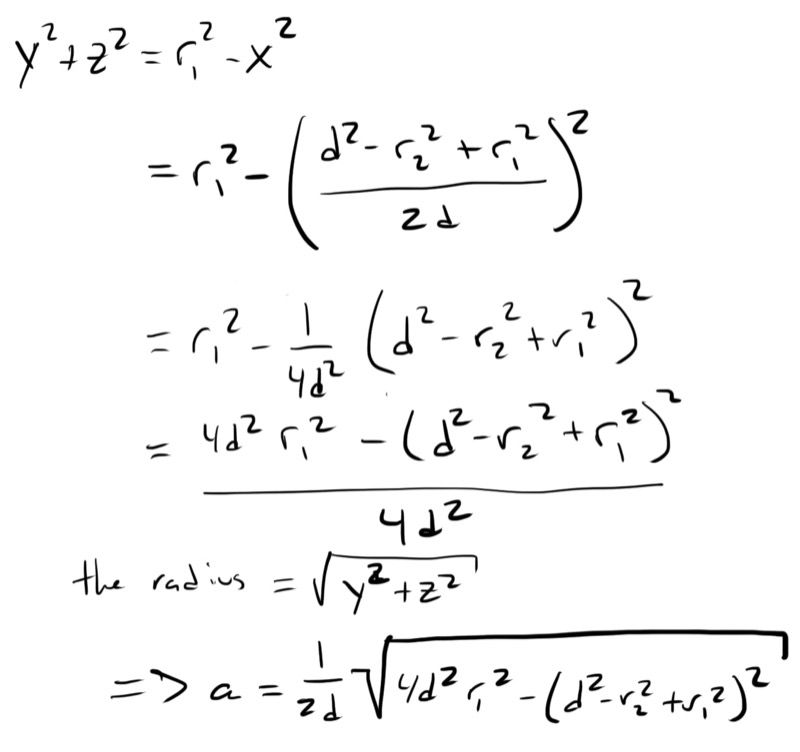 y² + z² = r₁² - x²
= r₁² - ((d² - r₂² + r₁²) / 2d)²
= r₁² - 1/4d² (d² - r₂² + r₁²)²
= (4d² r₁² - (d² - r₂² + r₁²)²) / 4d²
the radius = √(y² + z²)
=> a = 1/2d √(4d² r₁² - (d² - r₂² + r₁²)²)